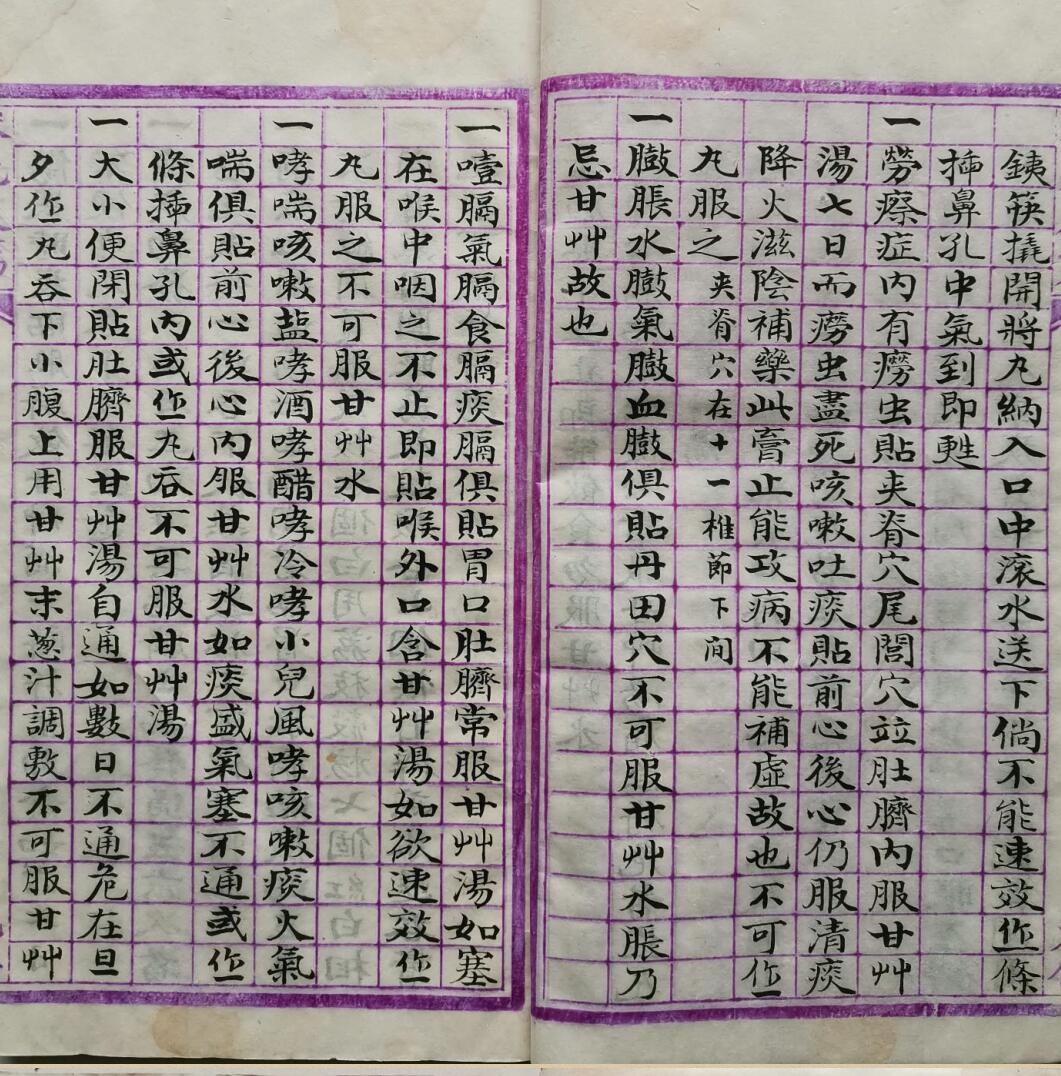 銕筷撬開將丸納入口中滾水送下倘不能速效作條
插鼻孔中氣到即甦
一勞瘵症內有癆虫貼夾脊穴尾閭穴竝肚臍內服甘艸
湯七日而癆虫盡死咳嗽吐痰貼前心後心仍服清痰
降火滋陰補藥此膏止能攻病不能補虛故也不可作
丸服之夾脊穴在十一椎節下間
一臌脹水臌氣臌血臌俱貼丹田穴不可服甘艸水脹乃
忌甘艸故也
一噎膈氣膈食膈痰膈俱貼胃口肚臍常服甘艸湯如塞
在喉中咽之不止即貼喉外口含甘艸湯如欲速效作
丸服之不可服甘艸水
一哮喘咳嗽盐哮酒哮醋哮冷哮小兒風哮咳嗽痰火氣
喘俱貼前心後心內服甘艸水如痰盛氣塞不通或作
條插鼻孔內或作丸吞不可服甘艸湯
一大小便閉貼肚臍服甘艸湯自通如數日不通危在旦
夕作丸吞下小腹上用甘艸末葱汁調敷不可服甘艸